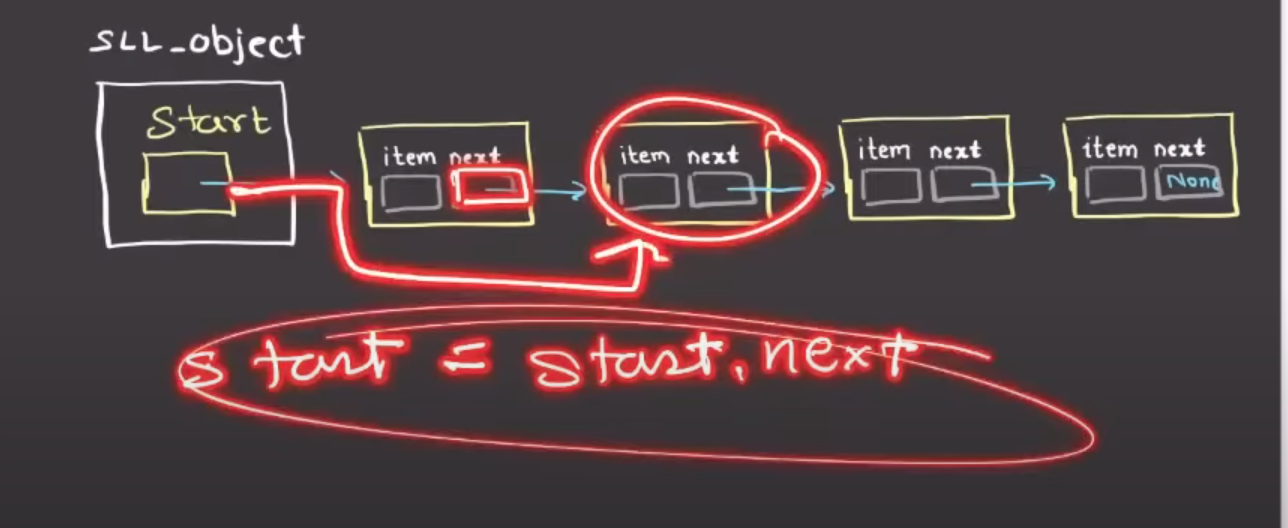 SLL_object
Start
item next
item next
item next
item next
None
start = start.next